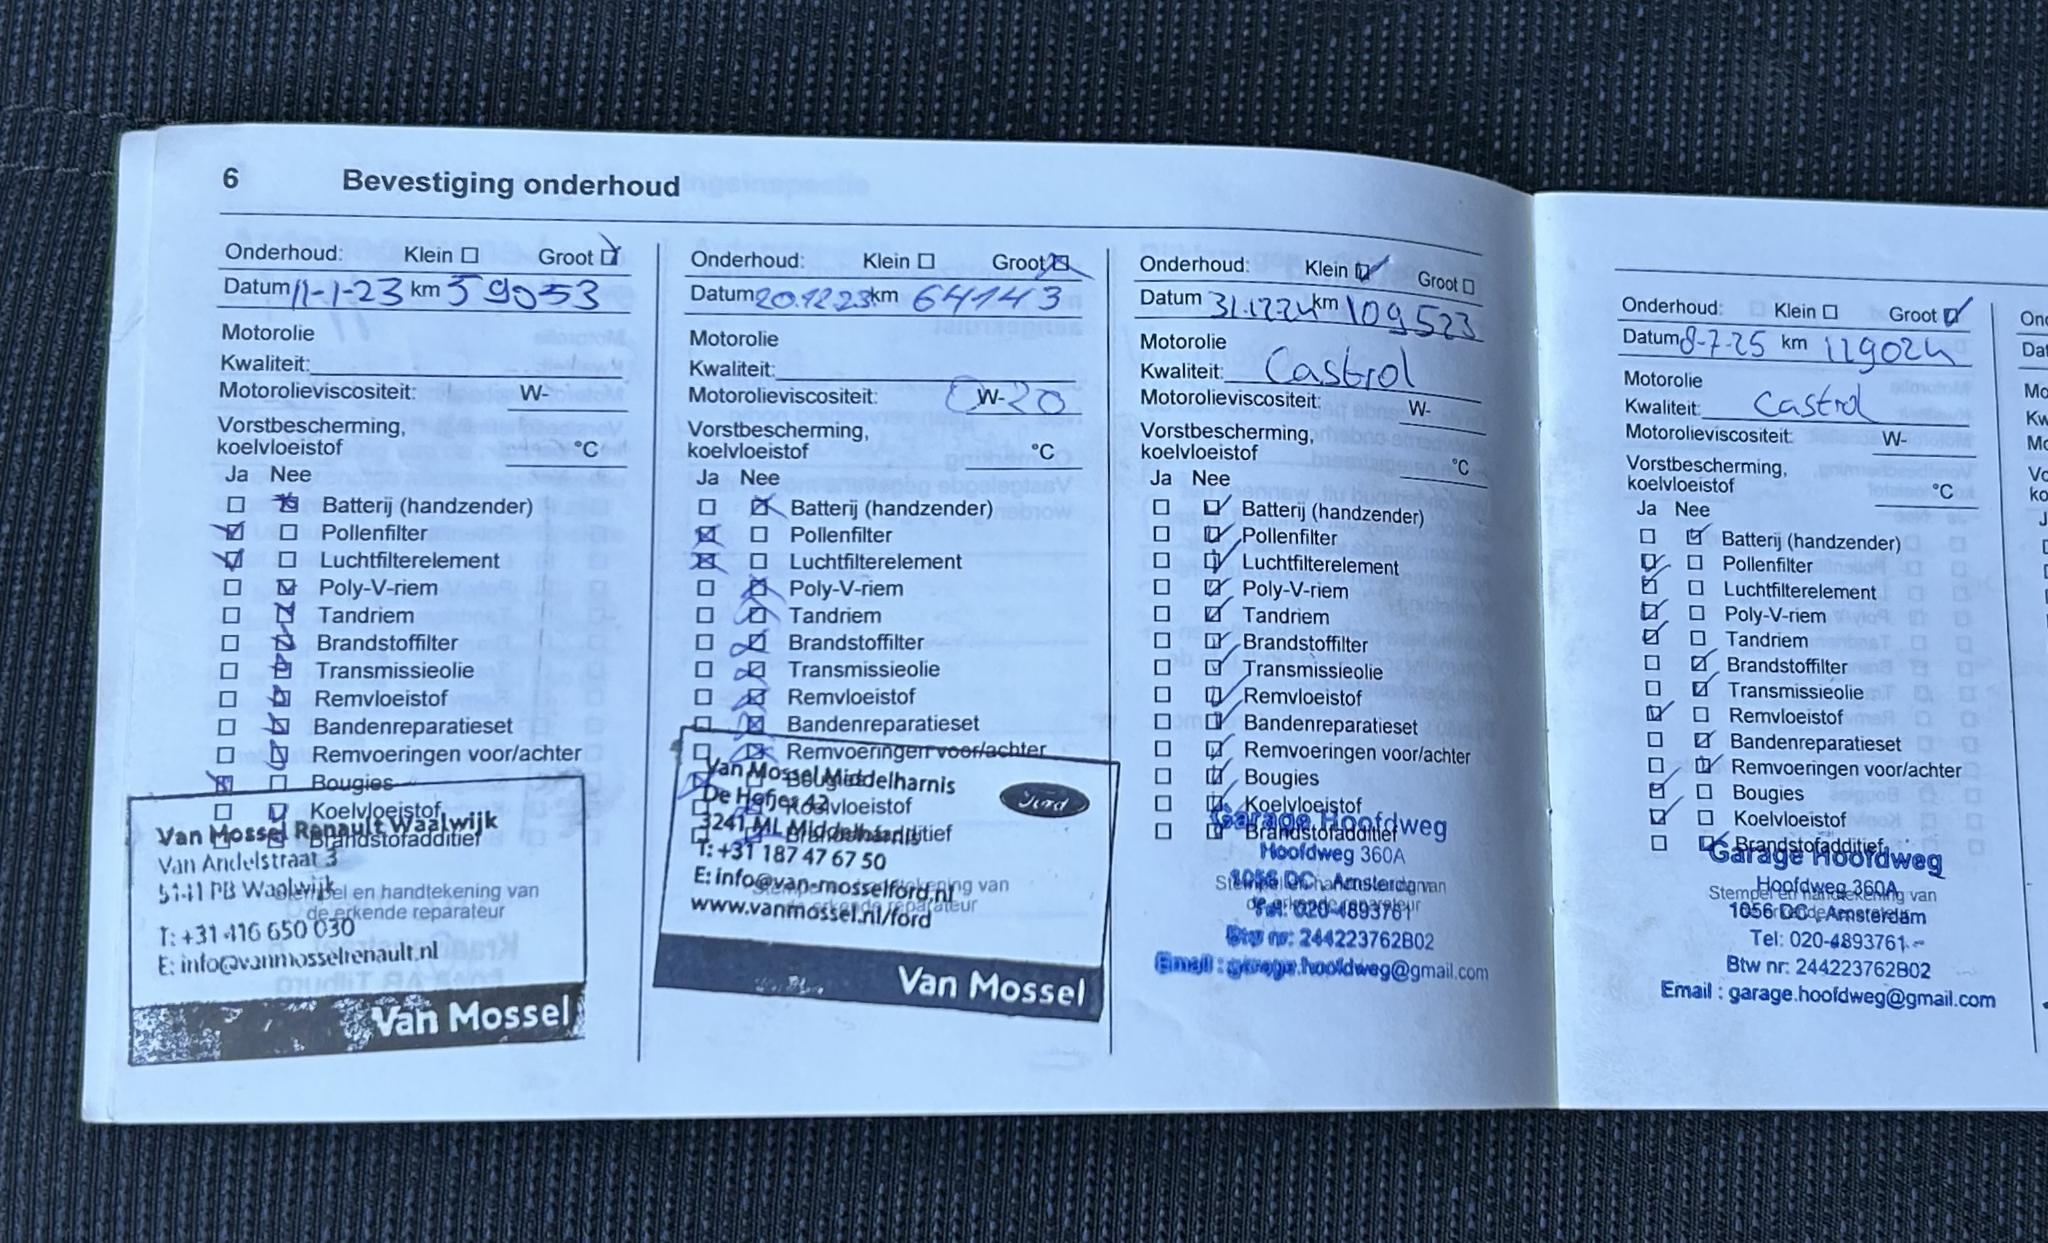 6 Bevestiging onderhoud
Onderhoud: Klein Groot
Datum 11-1-23 km 59053
Motorolie
Kwaliteit:
Motorolieviscositeit: W-
Vorstbescherming,
koelvloeistof °C
Ja Nee
Batterij (handzender)
Pollenfilter
Luchtfilterelement
Poly-V-riem
Tandriem
Brandstoffilter
Transmissieolie
Remvloeistof
Bandenreparatieset
Remvoeringen voor/achter
Bougies
Koelvloeistof
Brandstofadditief
Stempel en handtekening van
de erkende reparateur
Van Mossel Renault Waalwijk
Van Andelstraat 3
5141 PB Waalwijk
T: +31 416 650 030
E: info@vanmosselrenault.nl
Van Mossel
Onderhoud: Klein Groot
Datum 20.12.23 km 64143
Motorolie
Kwaliteit:
Motorolieviscositeit: 0W-20
Vorstbescherming,
koelvloeistof °C
Ja Nee
Batterij (handzender)
Pollenfilter
Luchtfilterelement
Poly-V-riem
Tandriem
Brandstoffilter
Transmissieolie
Remvloeistof
Bandenreparatieset
Remvoeringen voor/achter
Bougies
Koelvloeistof
Brandstofadditief
Van Mossel Middelharnis
De Hofjes 42
3241 ML Middelharnis
T: +31 187 47 67 50
E: info@van-mosselford.nl
www.vanmossel.nl/ford
Ford
Van Mossel
Onderhoud: Klein Groot
Datum 31.12.24 km 109523
Motorolie
Kwaliteit: Castrol
Motorolieviscositeit: W-
Vorstbescherming,
koelvloeistof °C
Ja Nee
Batterij (handzender)
Pollenfilter
Luchtfilterelement
Poly-V-riem
Tandriem
Brandstoffilter
Transmissieolie
Remvloeistof
Bandenreparatieset
Remvoeringen voor/achter
Bougies
Koelvloeistof
Brandstofadditief
Garage Hoofdweg
Hoofdweg 360A
1056 DC , Amsterdam
Tel: 020-4893761
Btw nr: 244223762B02
Email : garage.hoofdweg@gmail.com
Onderhoud: Klein Groot
Datum 8-7-25 km 129024
Motorolie
Kwaliteit: Castrol
Motorolieviscositeit: W-
Vorstbescherming,
koelvloeistof °C
Ja Nee
Batterij (handzender)
Pollenfilter
Luchtfilterelement
Poly-V-riem
Tandriem
Brandstoffilter
Transmissieolie
Remvloeistof
Bandenreparatieset
Remvoeringen voor/achter
Bougies
Koelvloeistof
Brandstofadditief
Stempel en handtekening van
Garage Hoofdweg
Hoofdweg 360A
1056 DC , Amsterdam
Tel: 020-4893761
Btw nr: 244223762B02
Email : garage.hoofdweg@gmail.com